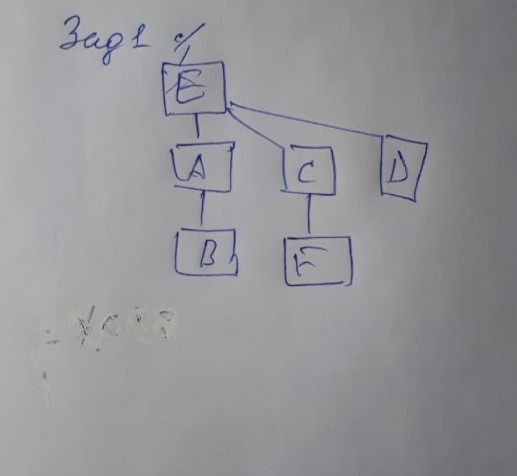 Зад 1
E
A C D
B F